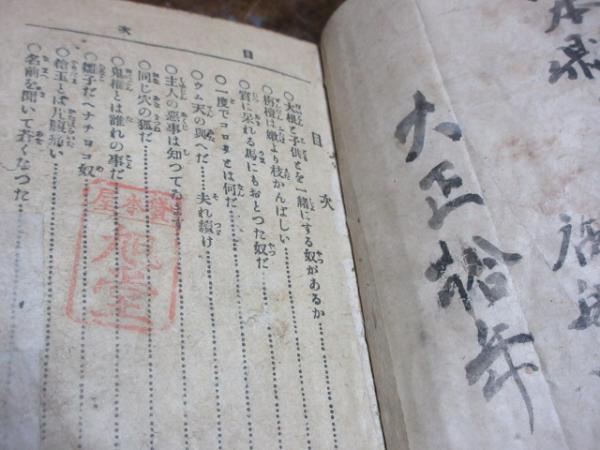 目次
目次
○大根と子供とを一緒にする奴があるか
○栴檀は嫩より枝かんばしい
○賞に呆れる馬にもおとつた奴だ
○一度でコロリとは何だ
○ウム天の與へだ 夫れ續け
○主人の惡事は知つて
○同じ穴の狐だ
○鬼權とは誰れの事だ
○雛子だヘナチョコ奴
○桧玉とは片腹痛い
○名前を聞いて吝くなつた
貸本屋
旭堂
大正拾年